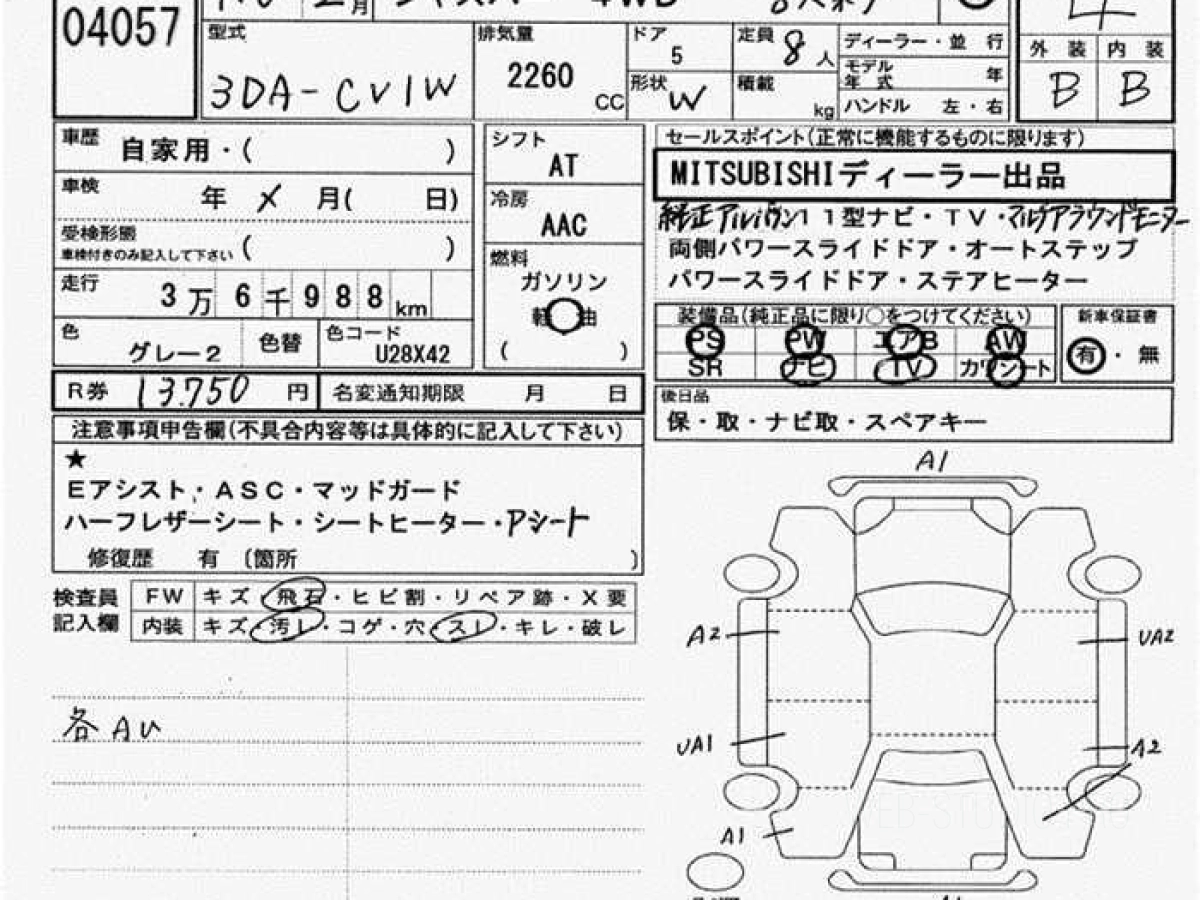 04057
月 ジャスパー 4WD 8人乗り
型式 3DA-CV1W
排気量 2260 CC
ドア 5
形状 W
定員 8 人
積載 kg
ディーラー・並 行
モデル年式 年
ハンドル 左・右
4
外 装 内 装
B B
車歴 自家用・( )
車検 年 X 月( 日)
受検形態
車検付きのみ記入して下さい ( )
走行 3万 6千 9 8 8 km
色 グレー2 色替 色コード U28X42
シフト
AT
冷房
AAC
燃料
ガソリン
軽 油
( )
セールスポイント(正常に機能するものに限ります)
MITSUBISHIディーラー出品
純正アルパイン11型ナビ・TV・マルチアラウンドモニター
両側パワースライドドア・オートステップ
パワースライドドア・ステアヒーター
装備品(純正品に限り○をつけてください)
PS PW エアB AW
SR ナビ TV カワシート
新車保証書
有・無
R券 13,750 円 名変通知期限 月 日
後日品
保・取・ナビ取・スペアキー
注意事項申告欄(不具合内容等は具体的に記入して下さい)
★
Eアシスト・ASC・マッドガード
ハーフレザーシート・シートヒーター・Pシート
修復歴 有 〔箇所 〕
検査員記入欄
FW キズ・飛石・ヒビ割・リペア跡・X要
内装 キズ・汚レ・コゲ・穴・スレ・キレ・破レ
各AU
A1
A2
UA2
UA1
A2
A1